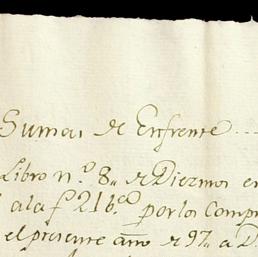 Sumas de Enfrente...
Libro n.º 8,, de Diezmos en
a la f.ª 21 b.ta por los Comp
el presente año de 97,, a D